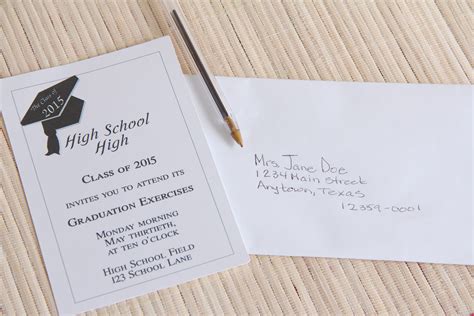 The Class of
2015
High School
High
Class of 2015
invites you to attend its
Graduation Exercises
Monday morning
May thirtieth,
at ten o'clock
High School Field
123 School Lane
Mrs. Jane Doe
1234 Main street
Anytown, Texas
12359-0001